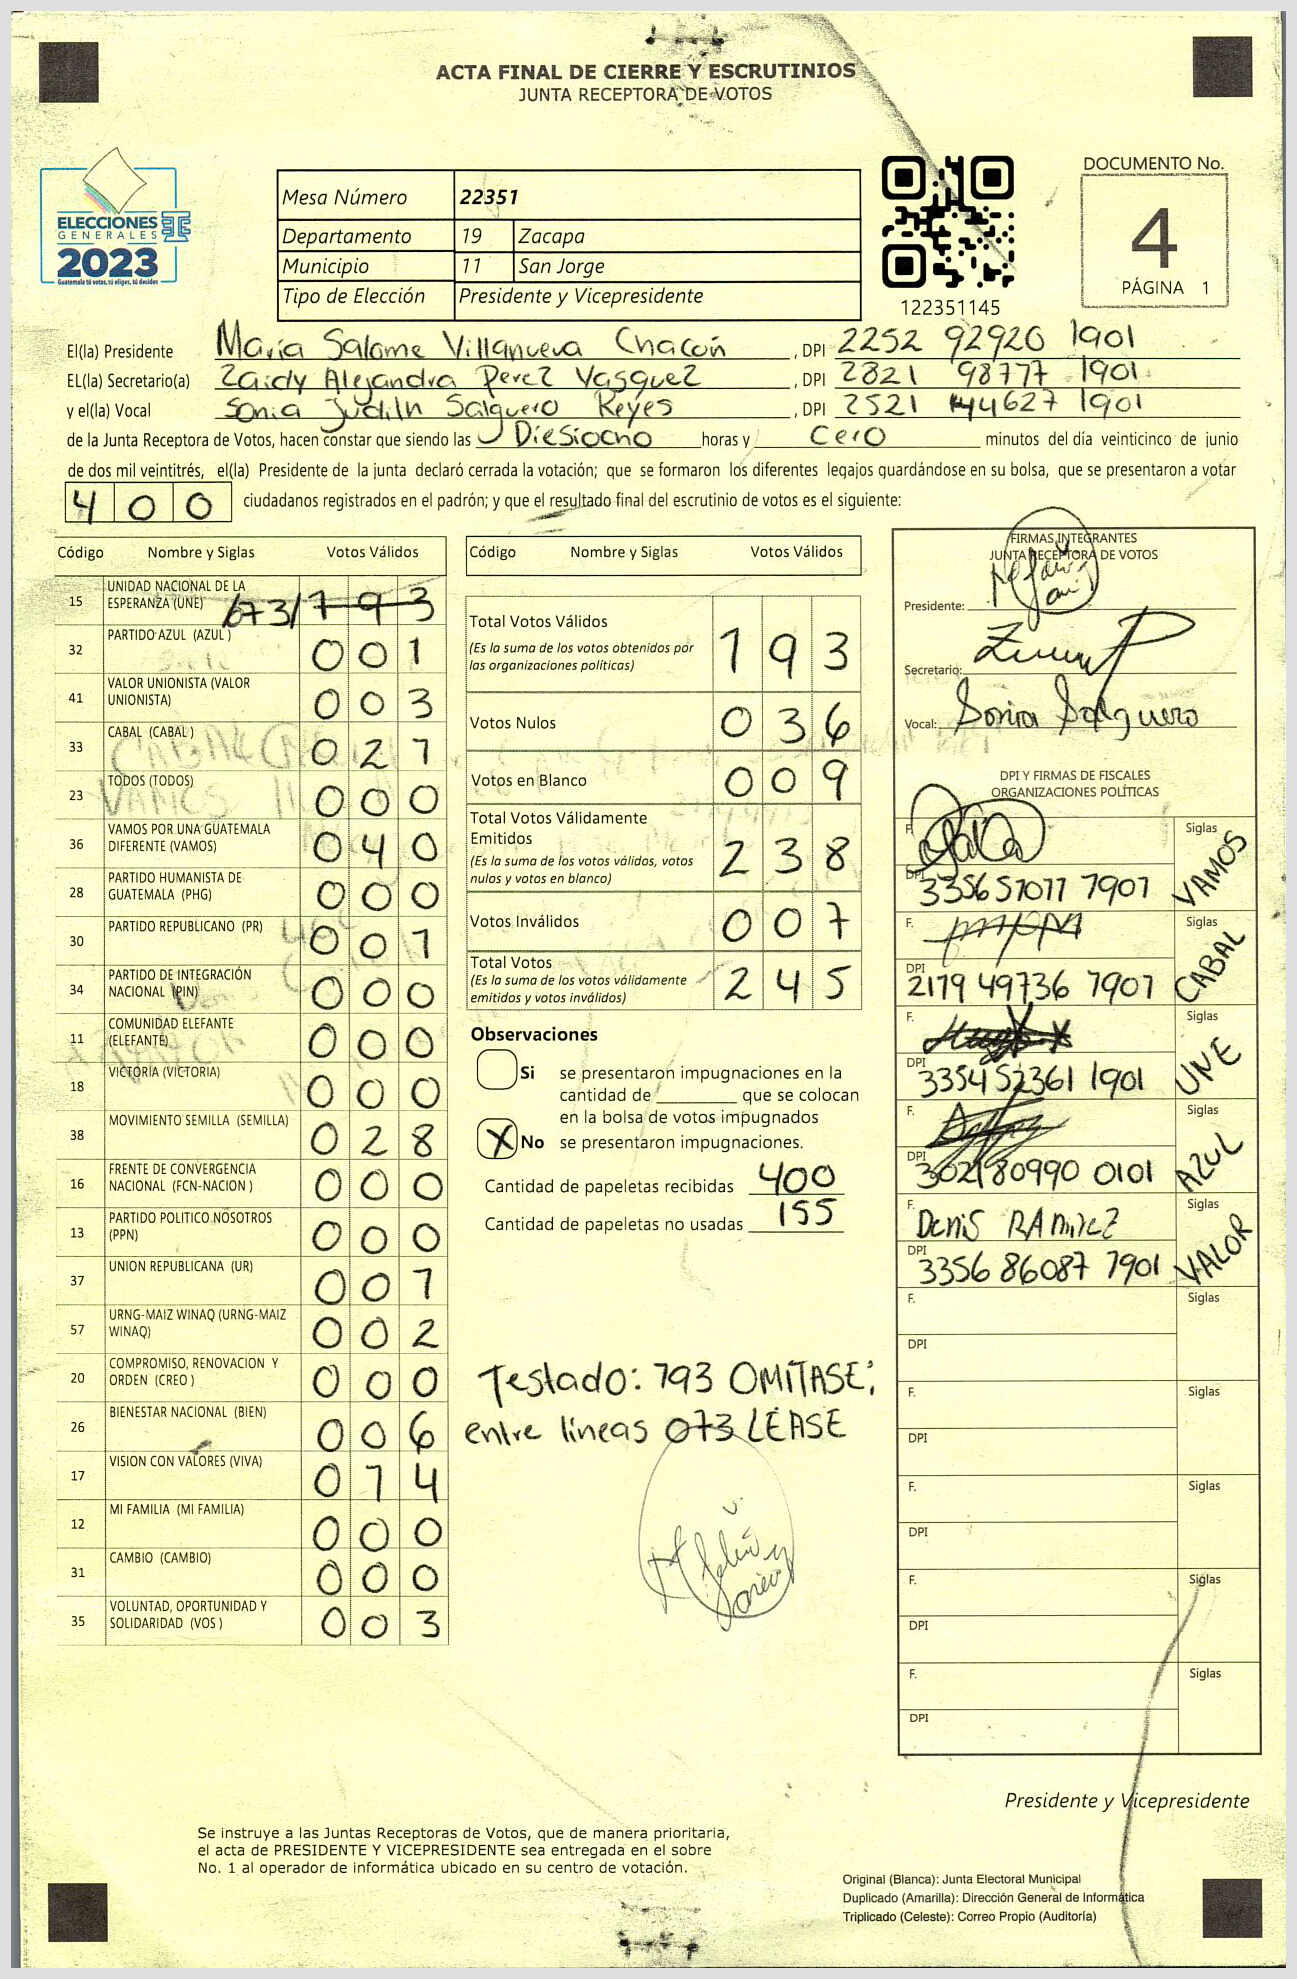 ACTA FINAL DE CIERRE Y ESCRUTINIOS
JUNTA RECEPTORA DE VOTOS
ELECCIONES
GENERALES
2023
Guatemala tú votas, tú eliges, tú decides
Mesa Número 22351
Departamento 19 Zacapa
Municipio 11 San Jorge
Tipo de Elección Presidente y Vicepresidente
122351145
DOCUMENTO No.
4
PÁGINA 1
El(la) Presidente María Salome Villanueva Chacón , DPI 2252 92920 1901
EL(la) Secretario(a) Zaidy Alejandra Perez Vasquez , DPI 2821 98777 1901
y el(la) Vocal Sonia Judith Salguero Reyes , DPI 2521 44627 1901
de la Junta Receptora de Votos, hacen constar que siendo las Diesiocho horas y Cero minutos del día veinticinco de junio
de dos mil veintitrés, el(la) Presidente de la junta declaró cerrada la votación; que se formaron los diferentes legajos guardándose en su bolsa, que se presentaron a votar
400 ciudadanos registrados en el padrón; y que el resultado final del escrutinio de votos es el siguiente:
Código Nombre y Siglas Votos Válidos
15 UNIDAD NACIONAL DE LA
ESPERANZA (UNE) /073/ 193
32 PARTIDO AZUL (AZUL ) 001
41 VALOR UNIONISTA (VALOR
UNIONISTA) 003
33 CABAL (CABAL ) 021
23 TODOS (TODOS) 000
36 VAMOS POR UNA GUATEMALA
DIFERENTE (VAMOS) 040
28 PARTIDO HUMANISTA DE
GUATEMALA (PHG) 000
30 PARTIDO REPUBLICANO (PR) 001
34 PARTIDO DE INTEGRACIÓN
NACIONAL (PIN) 000
11 COMUNIDAD ELEFANTE
(ELEFANTE) 000
18 VICTORIA (VICTORIA) 000
38 MOVIMIENTO SEMILLA (SEMILLA) 028
16 FRENTE DE CONVERGENCIA
NACIONAL (FCN-NACION ) 000
13 PARTIDO POLITICO NOSOTROS
(PPN) 000
37 UNION REPUBLICANA (UR) 001
57 URNG-MAIZ WINAQ (URNG-MAIZ
WINAQ) 002
20 COMPROMISO, RENOVACION Y
ORDEN (CREO ) 000
26 BIENESTAR NACIONAL (BIEN) 006
17 VISION CON VALORES (VIVA) 014
12 MI FAMILIA (MI FAMILIA) 000
31 CAMBIO (CAMBIO) 000
35 VOLUNTAD, OPORTUNIDAD Y
SOLIDARIDAD (VOS ) 003
Código Nombre y Siglas Votos Válidos
Total Votos Válidos
(Es la suma de los votos obtenidos por
las organizaciones políticas) 193
Votos Nulos 036
Votos en Blanco 009
Total Votos Válidamente
Emitidos
(Es la suma de los votos válidos, votos
nulos y votos en blanco) 238
Votos Inválidos 007
Total Votos
(Es la suma de los votos válidamente
emitidos y votos inválidos) 245
Observaciones
Si se presentaron impugnaciones en la
cantidad de ________ que se colocan
en la bolsa de votos impugnados
X No se presentaron impugnaciones.
Cantidad de papeletas recibidas 400
Cantidad de papeletas no usadas 155
Testado: 193 OMITASE;
entre lineas 073 LEASE
FIRMAS INTEGRANTES
JUNTA RECEPTORA DE VOTOS
Presidente:
Secretario:
Vocal: Sonia Salguero
DPI Y FIRMAS DE FISCALES
ORGANIZACIONES POLÍTICAS
F. Siglas
DPI 3356 57077 1901 VAMOS
F. Siglas
DPI 2179 49736 1901 CABAL
F. Siglas
DPI 3354 52361 1901 UNE
F. Siglas
DPI 3021 80990 0101 AZUL
F. Denis RAmirEZ Siglas
DPI 3356 86087 1901 VALOR
F. Siglas
DPI
F. Siglas
DPI
F. Siglas
DPI
F. Siglas
DPI
F. Siglas
DPI
Presidente y Vicepresidente
Se instruye a las Juntas Receptoras de Votos, que de manera prioritaria,
el acta de PRESIDENTE Y VICEPRESIDENTE sea entregada en el sobre
No. 1 al operador de informática ubicado en su centro de votación.
Original (Blanca): Junta Electoral Municipal
Duplicado (Amarilla): Dirección General de Informática
Triplicado (Celeste): Correo Propio (Auditoría)